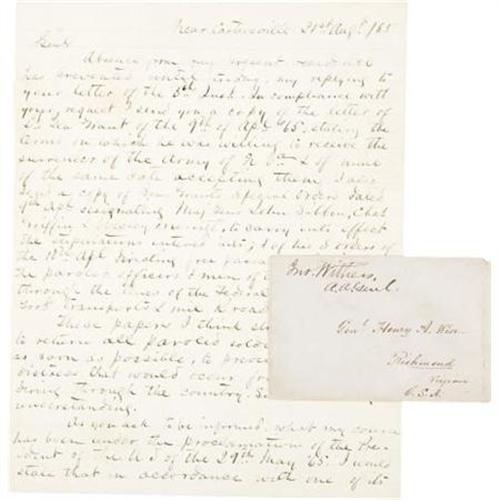 Near Cartersville 21st Augt /65
Genl
Absence from my present residence
has prevented until today, my replying to
your letter of the 5th Inst. In compliance with
your request I send you a copy of the letter of
Gen Grant of the 9th of Apl '65, stating the
terms on which he was willing to receive the
surrender of the Army of N. Va & of mine
of the same date accepting them. I also
send a copy of Gen Grants Special Orders dated
9th Apl designating Maj Gens John Gibbon, Chas
Griffin & Wesley Merritt, to carry into effect
the stipulations entered into; & of his orders of
the 10th Apl
the paroled officers & men of
through the lines of the Federal
Govt Transports & mil R roads
These papers I think
to return all paroled
as soon as possible, to
distress that would occur
through the country.
understanding.
As you ask to be informed, what my course
has been under the proclamation of the Pre-
ident of the U S of the 29th May '65. I would
state that in accordance with one of its
Jno. Withers,
A.A. Genl.
Genl Henry A. Wise
Richmond
C.S.A.